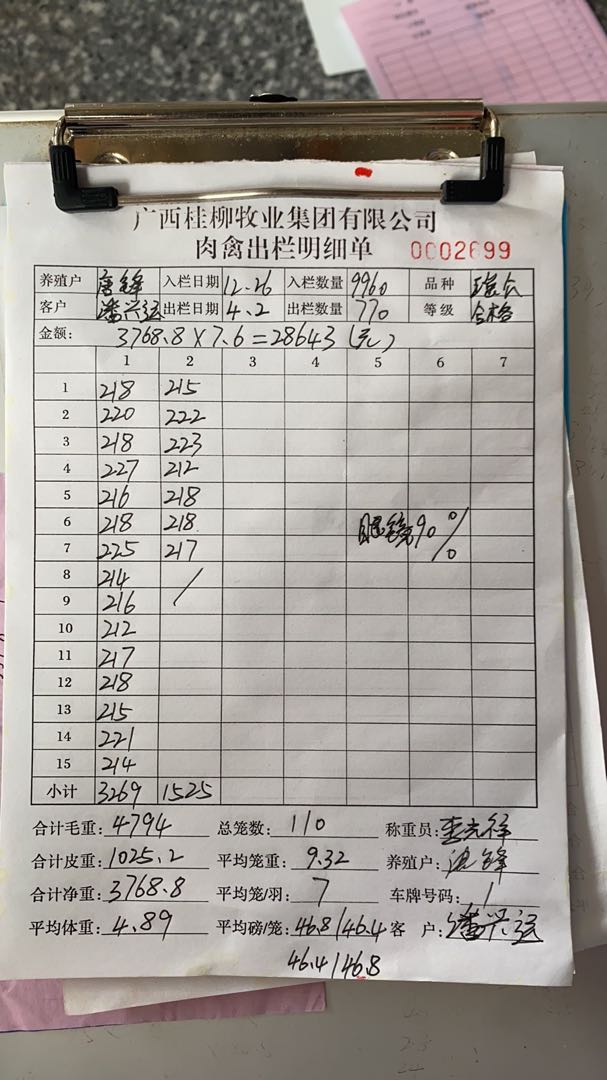 广西桂柳牧业集团有限公司
肉禽出栏明细单 0002699
养殖户 唐锋 入栏日期 12.26 入栏数量 9960 品种
客户 潘兴运 出栏日期 4.2 出栏数量 770 等级 合格
金额: 3768.8×7.6=28643(元)
1 2 3 4 5 6 7
1 218 215
2 220 222
3 218 223
4 227 212
5 216 218
6 218 218
7 225 217 眼镜90%
8 214 /
9 216
10 212
11 217
12 218
13 215
14 221
15 214
小计 3269 1525
合计毛重: 4794 总笼数: 110 称重员:
合计皮重: 1025.2 平均笼重: 9.32 养殖户: 唐锋
合计净重: 3768.8 平均笼/羽: 7 车牌号码: 1
平均体重: 4.89 平均磅/笼: 46.8/46.4 客户: 潘兴运
46.4/46.8